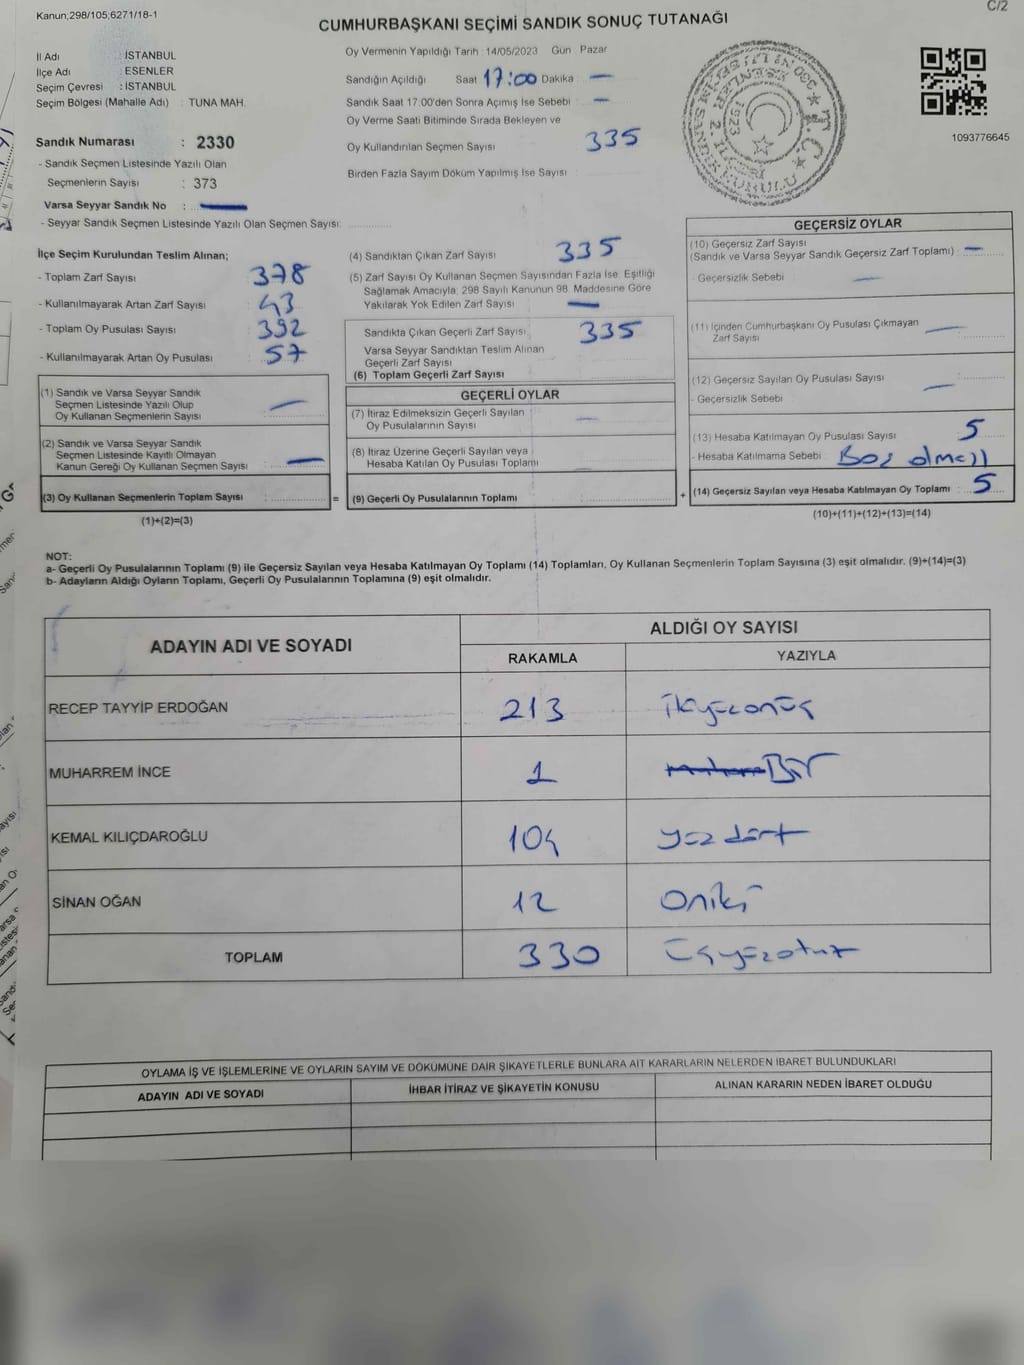 Kanun;298/105;6271/18-1
C/2
CUMHURBAŞKANI SEÇİMİ SANDIK SONUÇ TUTANAĞI
İl Adı : İSTANBUL
İlçe Adı : ESENLER
Seçim Çevresi : İSTANBUL
Seçim Bölgesi (Mahalle Adı) : TUNA MAH.
Sandık Numarası : 2330
- Sandık Seçmen Listesinde Yazılı Olan
Seçmenlerin Sayısı : 373
Varsa Seyyar Sandık No :
- Seyyar Sandık Seçmen Listesinde Yazılı Olan Seçmen Sayısı:
Oy Vermenin Yapıldığı Tarih : 14/05/2023 Gün Pazar
Sandığın Açıldığı Saat 17:00 Dakika : —
Sandık Saat 17:00'den Sonra Açımış İse Sebebi : —
Oy Verme Saati Bitiminde Sırada Bekleyen ve
Oy Kullandırılan Seçmen Sayısı : 335
Birden Fazla Sayım Döküm Yapılmış İse Sayısı :
T.C.
1923
1093776645
İlçe Seçim Kurulundan Teslim Alınan;
- Toplam Zarf Sayısı : 378
- Kullanılmayarak Artan Zarf Sayısı : 43
- Toplam Oy Pusulası Sayısı : 392
- Kullanılmayarak Artan Oy Pusulası : 57
(1) Sandık ve Varsa Seyyar Sandık
Seçmen Listesinde Yazılı Olup
Oy Kullanan Seçmenlerin Sayısı : —
(2) Sandık ve Varsa Seyyar Sandık
Seçmen Listesinde Kayıtlı Olmayan
Kanun Gereği Oy Kullanan Seçmen Sayısı : —
(3) Oy Kullanan Seçmenlerin Toplam Sayısı :
=
(1)+(2)=(3)
(4) Sandıktan Çıkan Zarf Sayısı : 335
(5) Zarf Sayısı Oy Kullanan Seçmen Sayısından Fazla İse, Eşitliği
Sağlamak Amacıyla; 298 Sayılı Kanunun 98. Maddesine Göre
Yakılarak Yok Edilen Zarf Sayısı : —
Sandıkta Çıkan Geçerli Zarf Sayısı : 335
Varsa Seyyar Sandıktan Teslim Alınan
Geçerli Zarf Sayısı
(6) Toplam Geçerli Zarf Sayısı
GEÇERLİ OYLAR
(7) İtiraz Edilmeksizin Geçerli Sayılan
Oy Pusulalarının Sayısı : —
(8) İtiraz Üzerine Geçerli Sayılan veya
Hesaba Katılan Oy Pusulası Toplamı : —
(9) Geçerli Oy Pusulalarının Toplamı :
+
GEÇERSİZ OYLAR
(10) Geçersiz Zarf Sayısı
(Sandık ve Varsa Seyyar Sandık Geçersiz Zarf Toplamı) : —
- Geçersizlik Sebebi : —
(11) İçinden Cumhurbaşkanı Oy Pusulası Çıkmayan
Zarf Sayısı : —
(12) Geçersiz Sayılan Oy Pusulası Sayısı : —
- Geçersizlik Sebebi :
(13) Hesaba Katılmayan Oy Pusulası Sayısı : 5
- Hesaba Katılmama Sebebi : Boş
(14) Geçersiz Sayılan veya Hesaba Katılmayan Oy Toplamı : 5
(10)+(11)+(12)+(13)=(14)
NOT:
a- Geçerli Oy Pusulalarının Toplamı (9) ile Geçersiz Sayılan veya Hesaba Katılmayan Oy Toplamı (14) Toplamları, Oy Kullanan Seçmenlerin Toplam Sayısına (3) eşit olmalıdır. (9)+(14)=(3)
b- Adayların Aldığı Oyların Toplamı, Geçerli Oy Pusulalarının Toplamına (9) eşit olmalıdır.
ADAYIN ADI VE SOYADI
ALDIĞI OY SAYISI
RAKAMLA YAZIYLA
RECEP TAYYİP ERDOĞAN 213 ikiyüzonüç
MUHARREM İNCE 1 Bir
KEMAL KILIÇDAROĞLU 104 yüz dört
SİNAN OĞAN 12 Oniki
TOPLAM 330 Üçyüzotuz
OYLAMA İŞ VE İŞLEMLERİNE VE OYLARIN SAYIM VE DÖKÜMÜNE DAİR ŞİKAYETLERLE BUNLARA AİT KARARLARIN NELERDEN İBARET BULUNDUKLARI
ADAYIN ADI VE SOYADI İHBAR İTİRAZ VE ŞİKAYETİN KONUSU ALINAN KARARIN NEDEN İBARET OLDUĞU